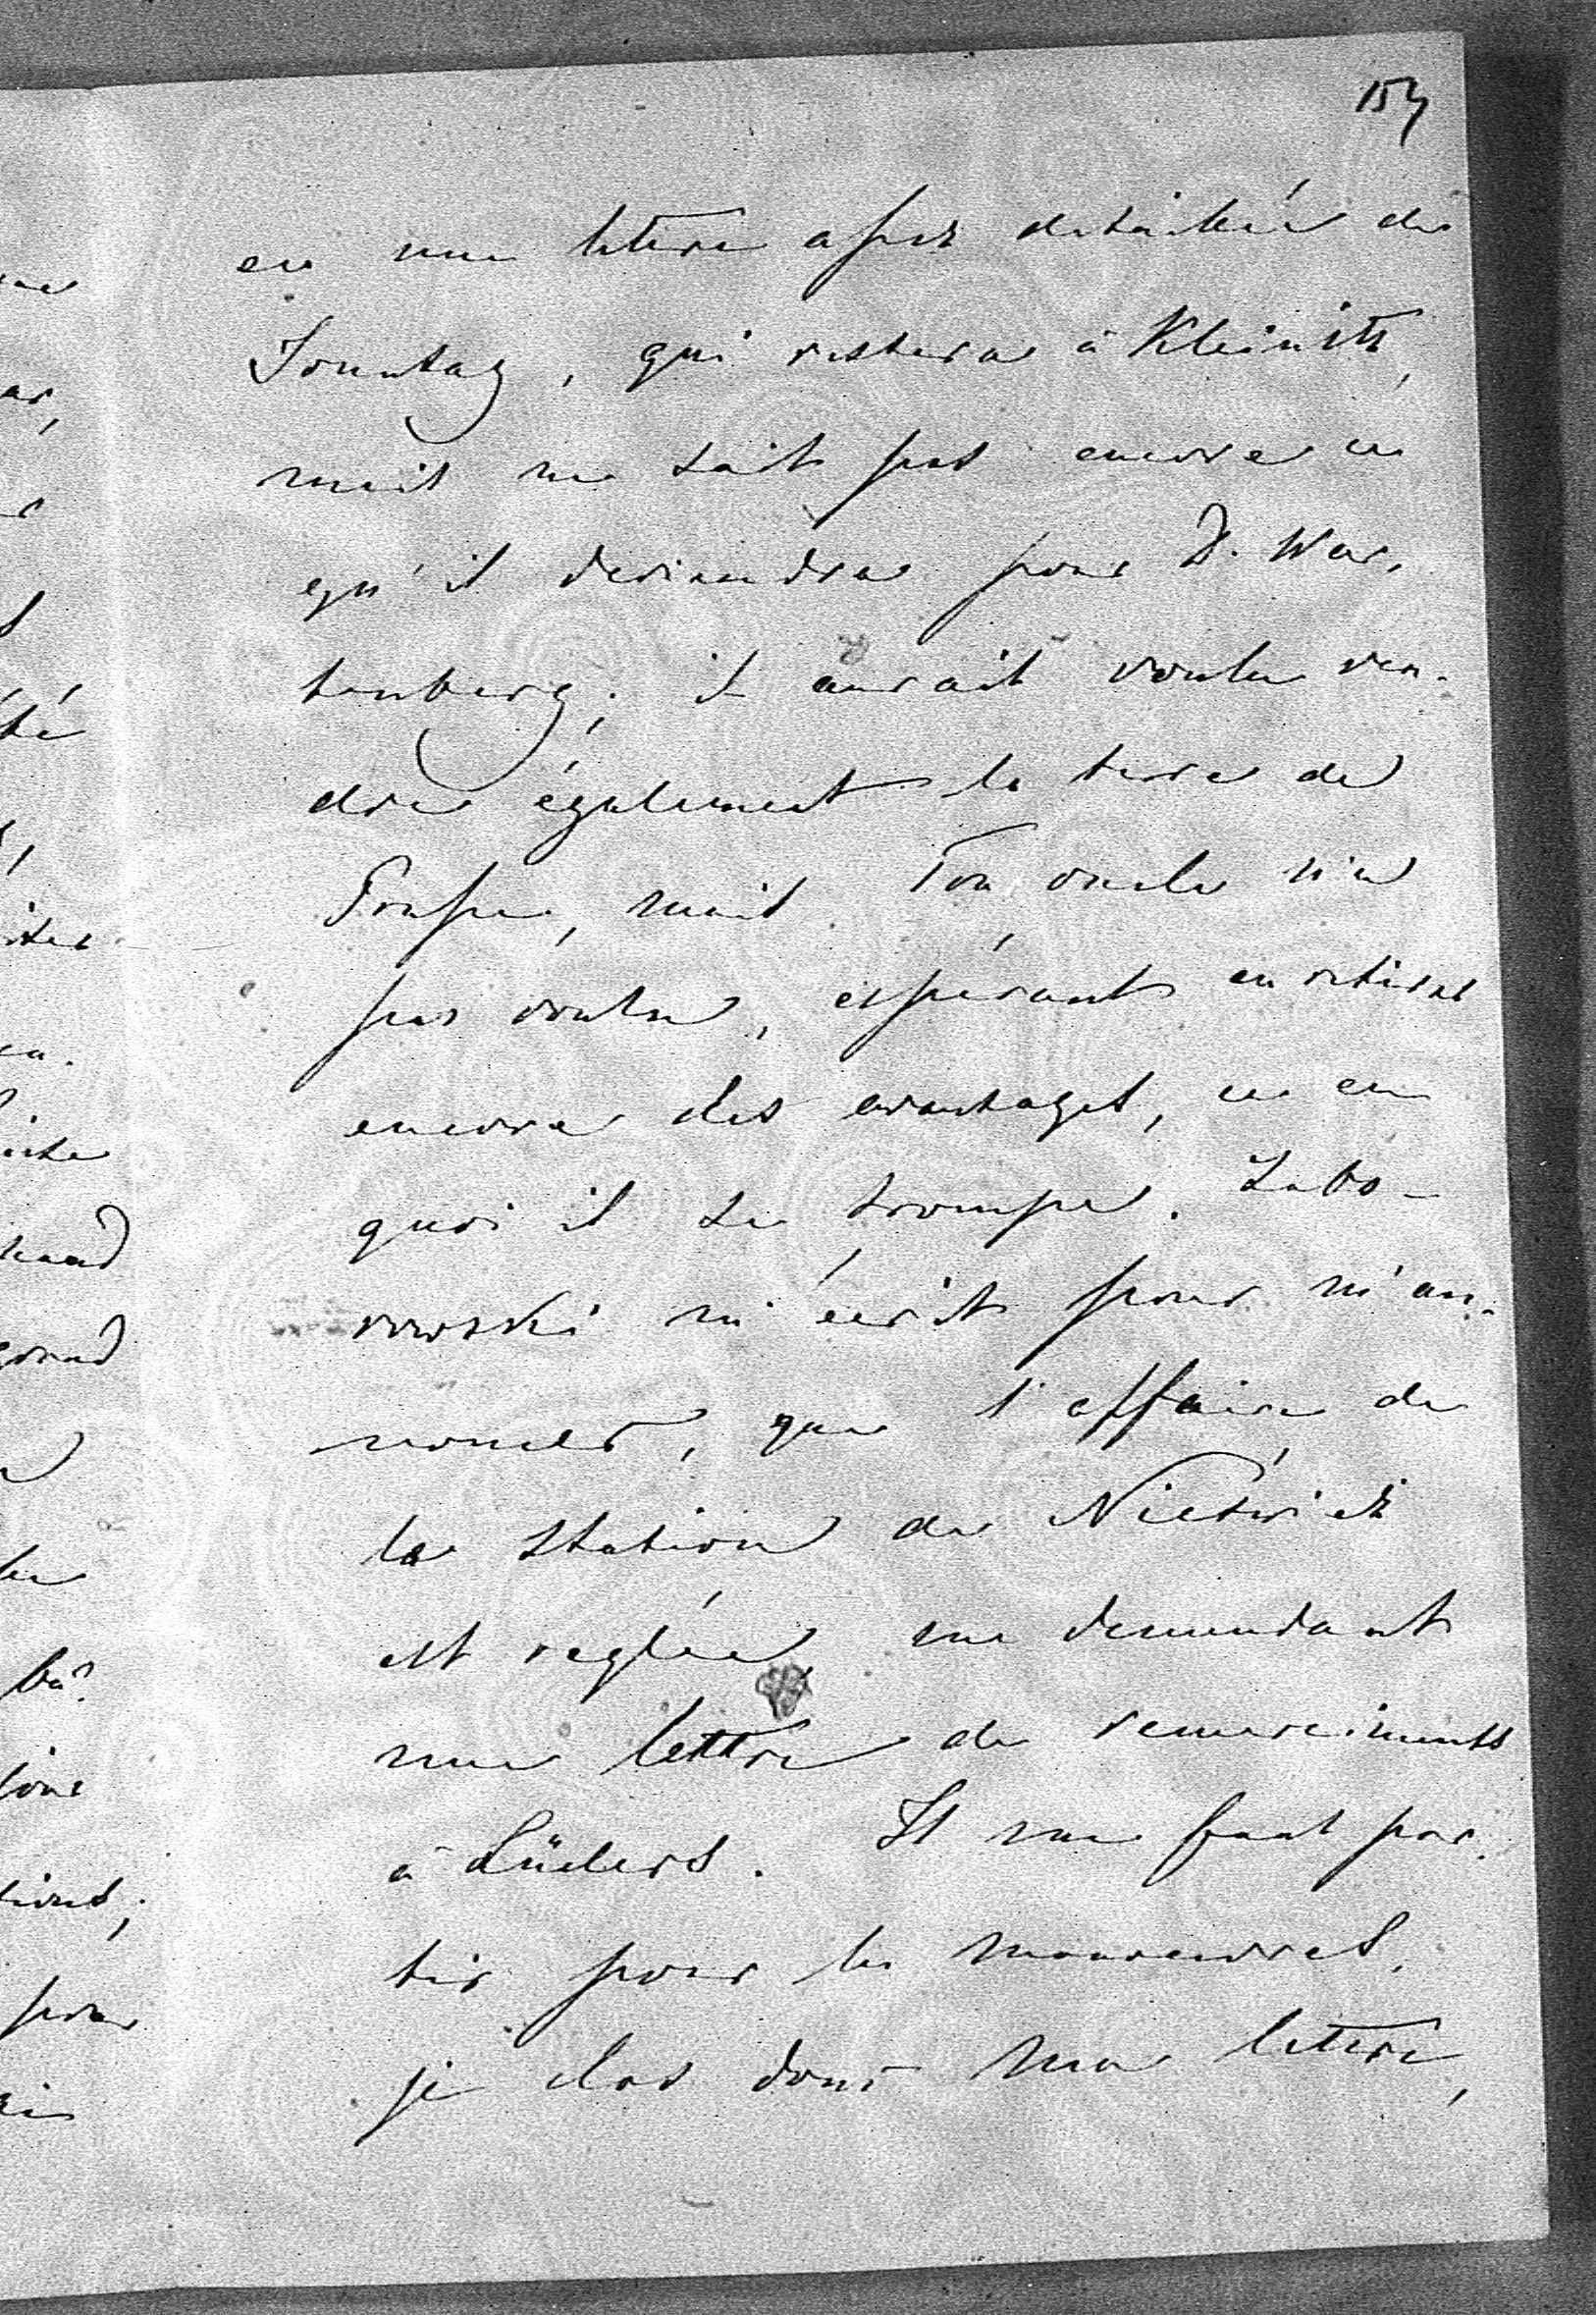 157
eu une lettre assez detaillée de
Sonntag, qui restera à Kleinitz,
mais ne sait pas encore ce
qu'il deviendra pour D. War,
tenberg; il aurait voulu ven-
dre également la terre de
mais Ton oncle n'a
pas voulu, espérant en retirer
encore des avantages, ce en
quoi il se trompe. Labo-
rowski m'écrit pour m'an-
noncer, que l'affaire de
la station de Nieswież
est reglée, me demandant
une lettre de remerciments
à Lüders. Il me faut par-
tir pour les manœuvres,
je clos donc ma lettre,